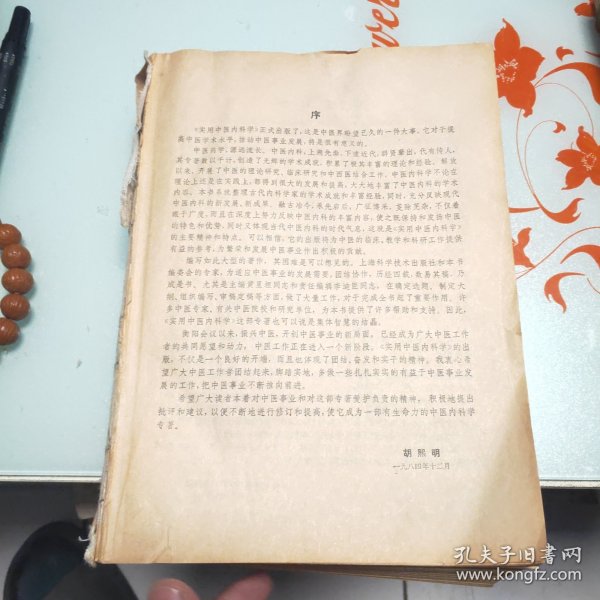 序
《实用中医内科学》正式出版了，这是中医界盼望已久的一件大事。它对于提
高中医学术水平，推动中医事业发展，将是很有意义的。
中医药学，源远流长。中医内科，上溯先秦，下逮近代，群贤辈出，代有传人，
其专著数以千计，创造了光辉的学术成就，积累了极其丰富的理论和经验。解放
以来，开展了中医的理论研究、临床研究和中西医结合工作，中医内科学不论在
理论上还是在实践上，都得到很大的发展和提高，大大地丰富了中医内科的学术
内容。本书系统整理古代内科学家的学术成就和丰富经验，同时，充分反映现代
中医内科的新发展、新成果。融古冶今，承先启后，广征博采，芟除芜杂，不仅着
眼于广度，而且在深度上努力反映中医内科的丰富内容，使之既保持和发扬中医
的特色和优势，同时又体现当代中医内科的时代气息，这是《实用中医内科学》
的主要精神和特点。可以相信，它的出版将为中医的临床、教学和科研工作提供
有益的参考，为繁荣和发展中医事业作出积极的贡献。
编写如此大型的著作，其困难是可以想见的。上海科学技术出版社和本书
编委会的专家，为适应中医事业的发展需要，团结协作，历经四载，数易其稿，乃
成是书。尤其是主编黄星垣同志和责任编辑李迪臣同志，在确定选题、制定大
纲、组织编写、审稿定稿等方面，做了大量工作，对于完成全书起了重要作用。许
多中医专家、有关中医院校和研究单位，为本书提供了许多帮助和支持。因此，
《实用中医内科学》这部专著也可以说是集体智慧的结晶。
衡阳会议以来，振兴中医，开创中医事业的新局面，已经成为广大中医工作
者的共同愿望和动力，中医工作正在进入一个新阶段。《实用中医内科学》的出
版，不仅是一个良好的开端，而且也体现了团结、奋发和实干的精神。我衷心希
望广大中医工作者团结起来，脚踏实地，多做一些扎扎实实的有益于中医事业发
展的工作，把中医事业不断推向前进。
希望广大读者本着对中医事业和对这部专著爱护负责的精神，积极地提出
批评和建议，以便不断地进行修订和提高，使它成为一部有生命力的中医内科学
专著。
胡熙明
一九八四年十二月
孔夫子旧书网
www.kongfz.com